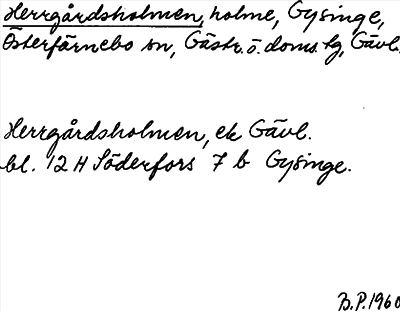 Herrgårdsholmen, holme, Gysinge,
Österfärnebo sn, Gästr. ö. doms. tg, Gävl.
Herrgårdsholmen, ek Gävl.
bl. 12 H Söderfors 7 b Gysinge.
B.P. 1960